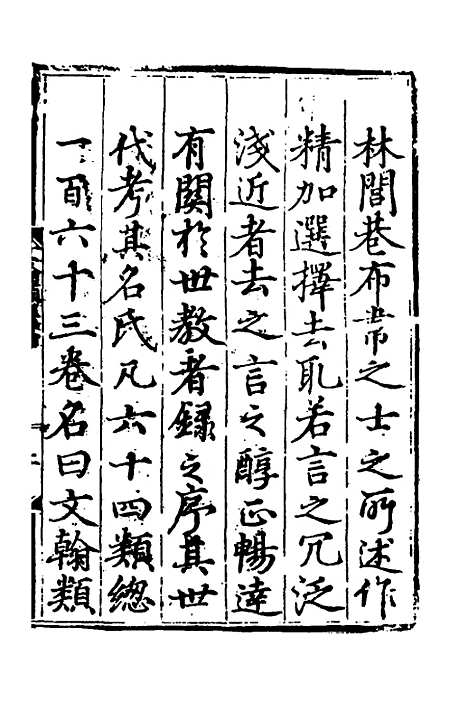 林閭巷布帶之士之所述作
精加選擇去取若言之冗泛
淺近者去之言之醇正暢達
有關於世教者録之序其世
代考其名氏凡六十四類總
一百六十三卷名曰文翰類